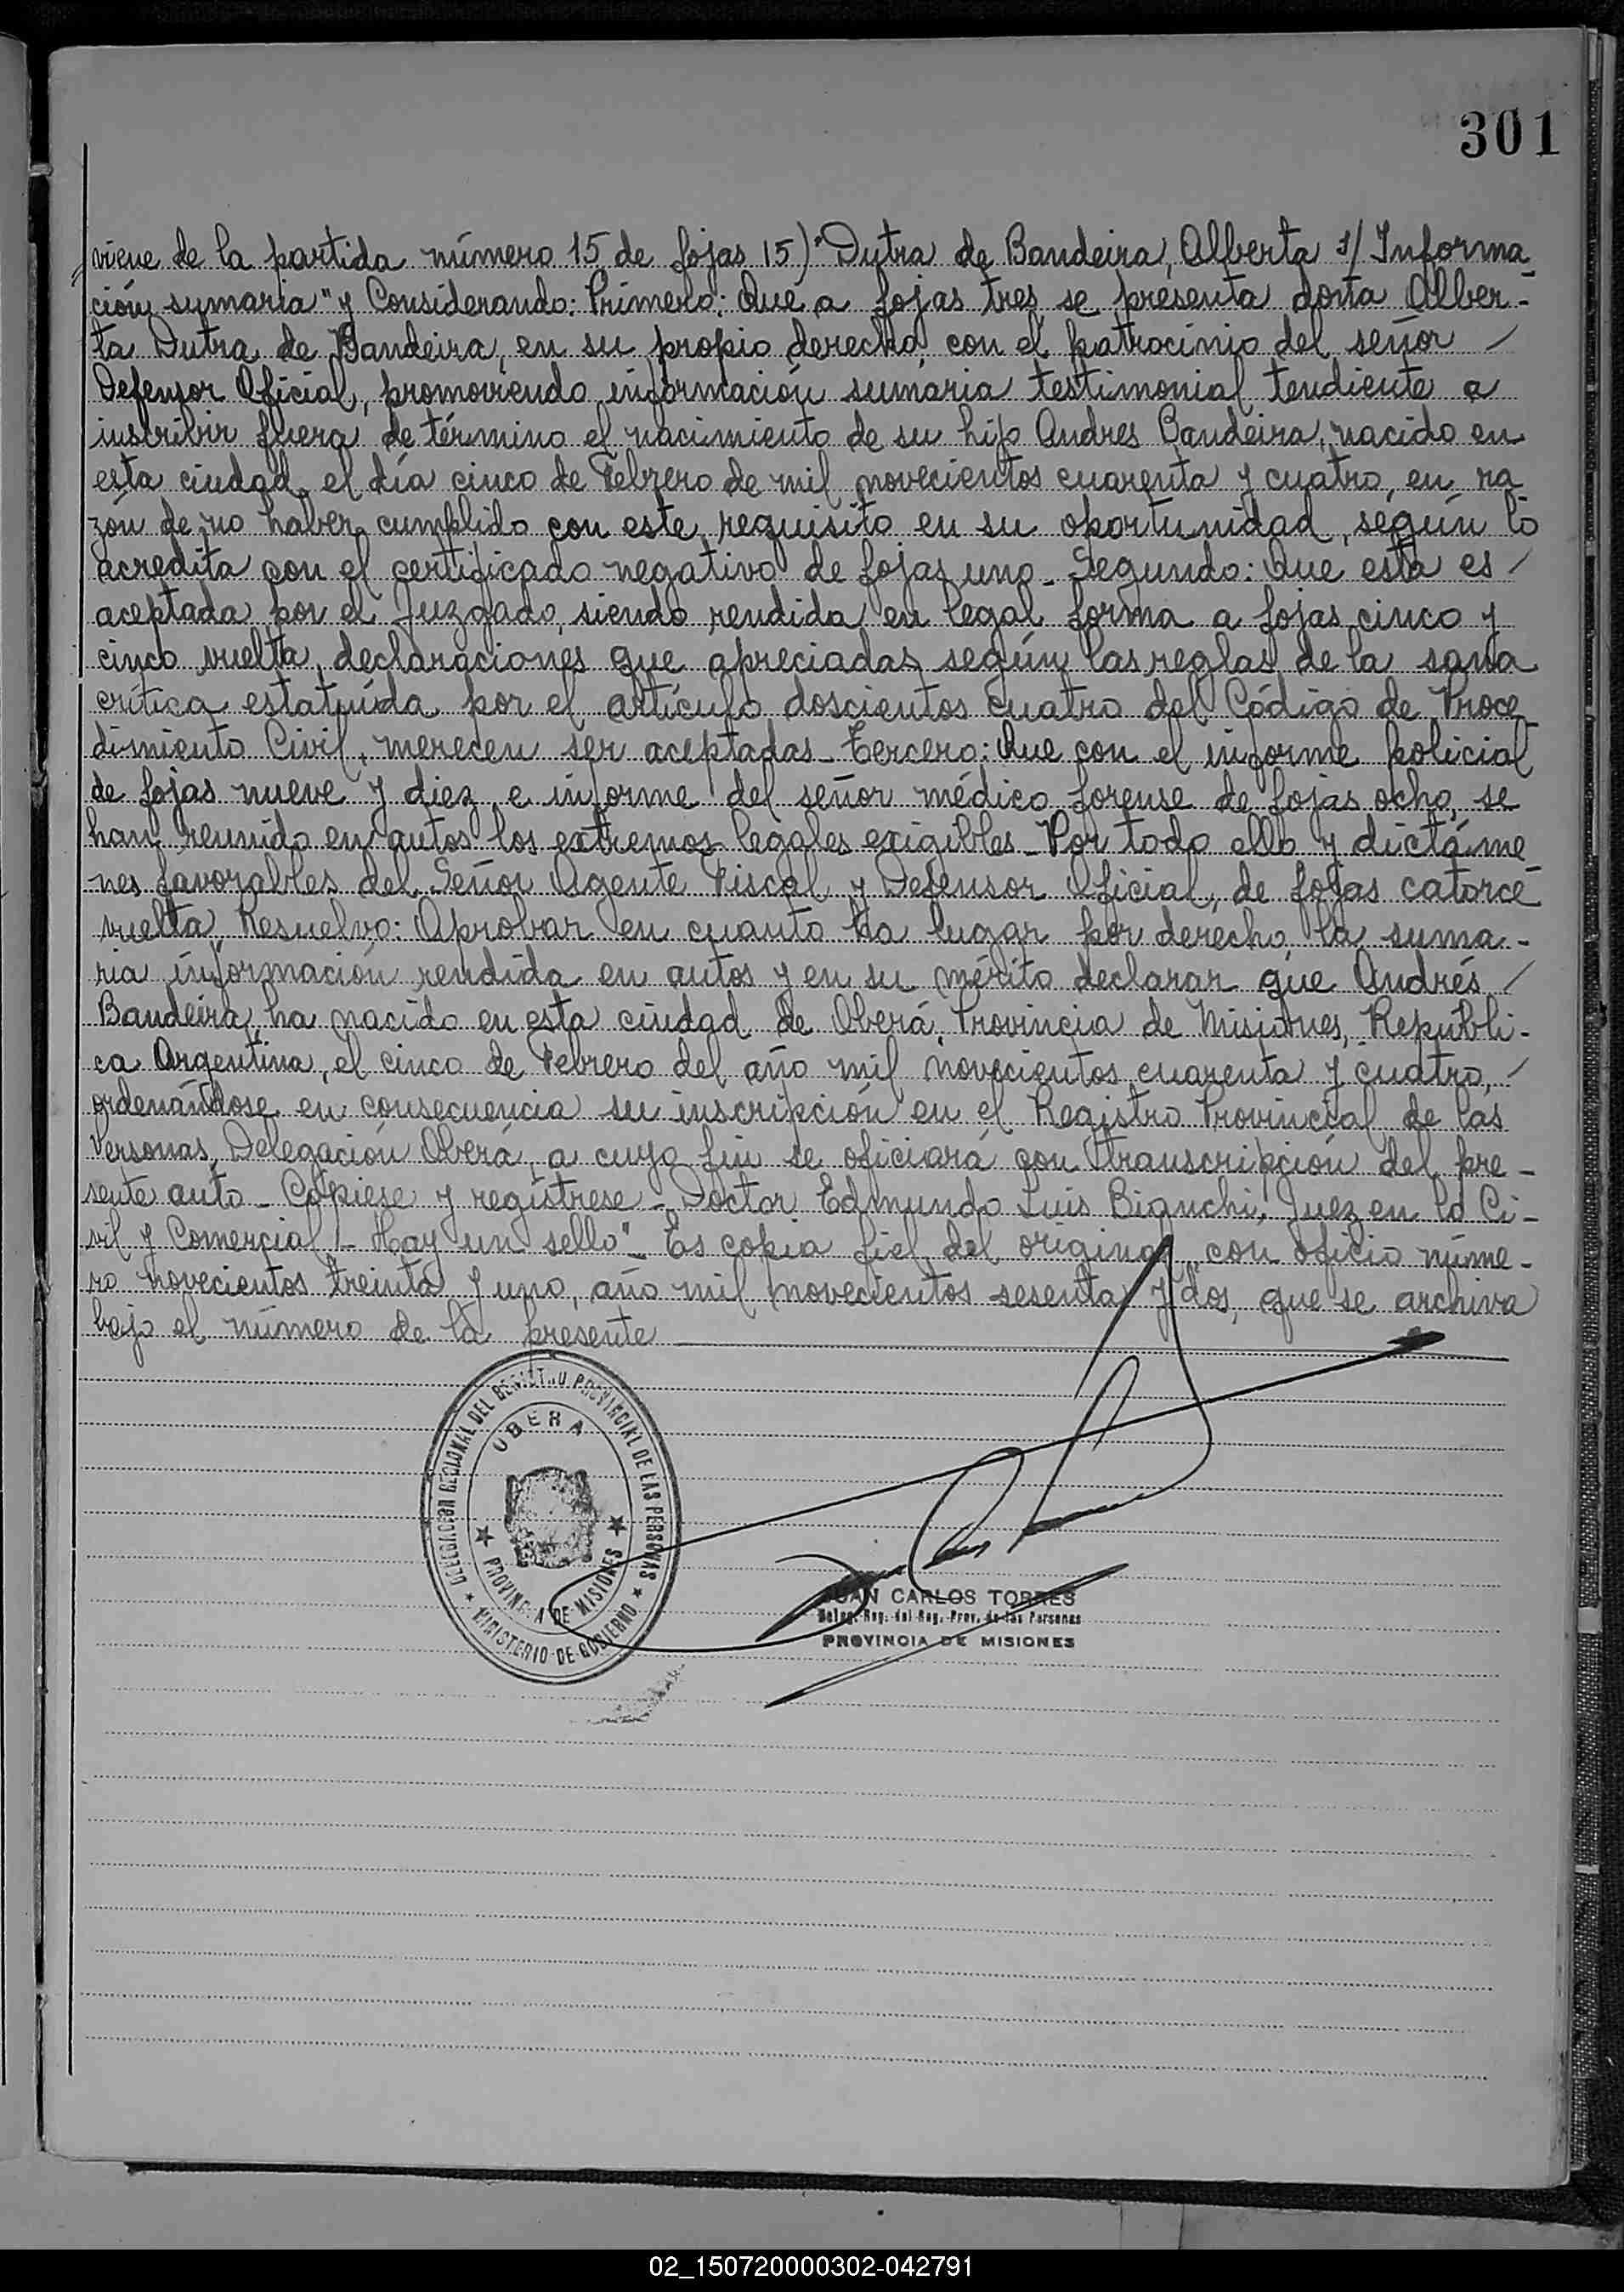 301
viene de la partida número 15 de fojas 15) "Dutra de Bandeira, Alberta s/ Informa-
ción sumaria" y Considerando: Primero: Que a fojas tres se presenta doña Alber-
ta Dutra de Bandeira, en su propio derecho, con el patrocinio del señor /
Defensor Oficial, promoviendo información sumaria testimonial tendiente a
inscribir fuera de término el nacimiento de su hijo Andres Bandeira, nacido en
esta ciudad, el día cinco de Febrero de mil novecientos cuarenta y cuatro, en ra-
zón de no haber cumplido con este requisito en su oportunidad, según lo
acredita con el certificado negativo de fojas uno_ Segundo: Que esta es /
aceptada por el Juzgado, siendo rendida en legal forma a fojas cinco y
cinco vuelta, declaraciones que apreciadas según las reglas de la sana
crítica estatuída por el artículo doscientos cuatro del Código de Proce-
dimiento Civil, merecen ser aceptadas_ Tercero: Que con el informe policial
de fojas nueve y diez e informe del señor médico forense de fojas ocho, se
han reunido en autos los extremos legales exigibles_ Por todo ello y dictáme-
nes favorables del Señor Agente Fiscal y Defensor Oficial, de fojas catorce
vuelta, Resuelvo: Aprobar en cuanto ha lugar por derecho la suma-
ria información rendida en autos y en su mérito declarar que Andrés /
Bandeira, ha nacido en esta ciudad de Oberá, Provincia de Misiones, Repúbli-
ca Argentina, el cinco de Febrero del año mil novecientos cuarenta y cuatro, /
ordenándose en consecuencia su inscripción en el Registro Provincial de las
Personas, Delegación Oberá, a cuyo fin se oficiará con transcripción del pre-
sente auto_ Cópiese y regístrese_ Doctor Edmundo Luis Bianchi, Juez en lo Ci-
vil y Comercial_ Hay un sello"_ Es copia fiel del original, con oficio núme-
ro novecientos treinta y uno, año mil novecientos sesenta y dos, que se archiva
bajo el número de la presente
DELEGACION REGIONAL DEL REGISTRO PROVINCIAL DE LAS PERSONAS
OBERA
PROVINCIA DE MISIONES
MINISTERIO DE GOBIERNO
JUAN CARLOS TORRES
Deleg. Reg. del Reg. Prov. de las Personas
PROVINCIA DE MISIONES
02_150720000302-042791